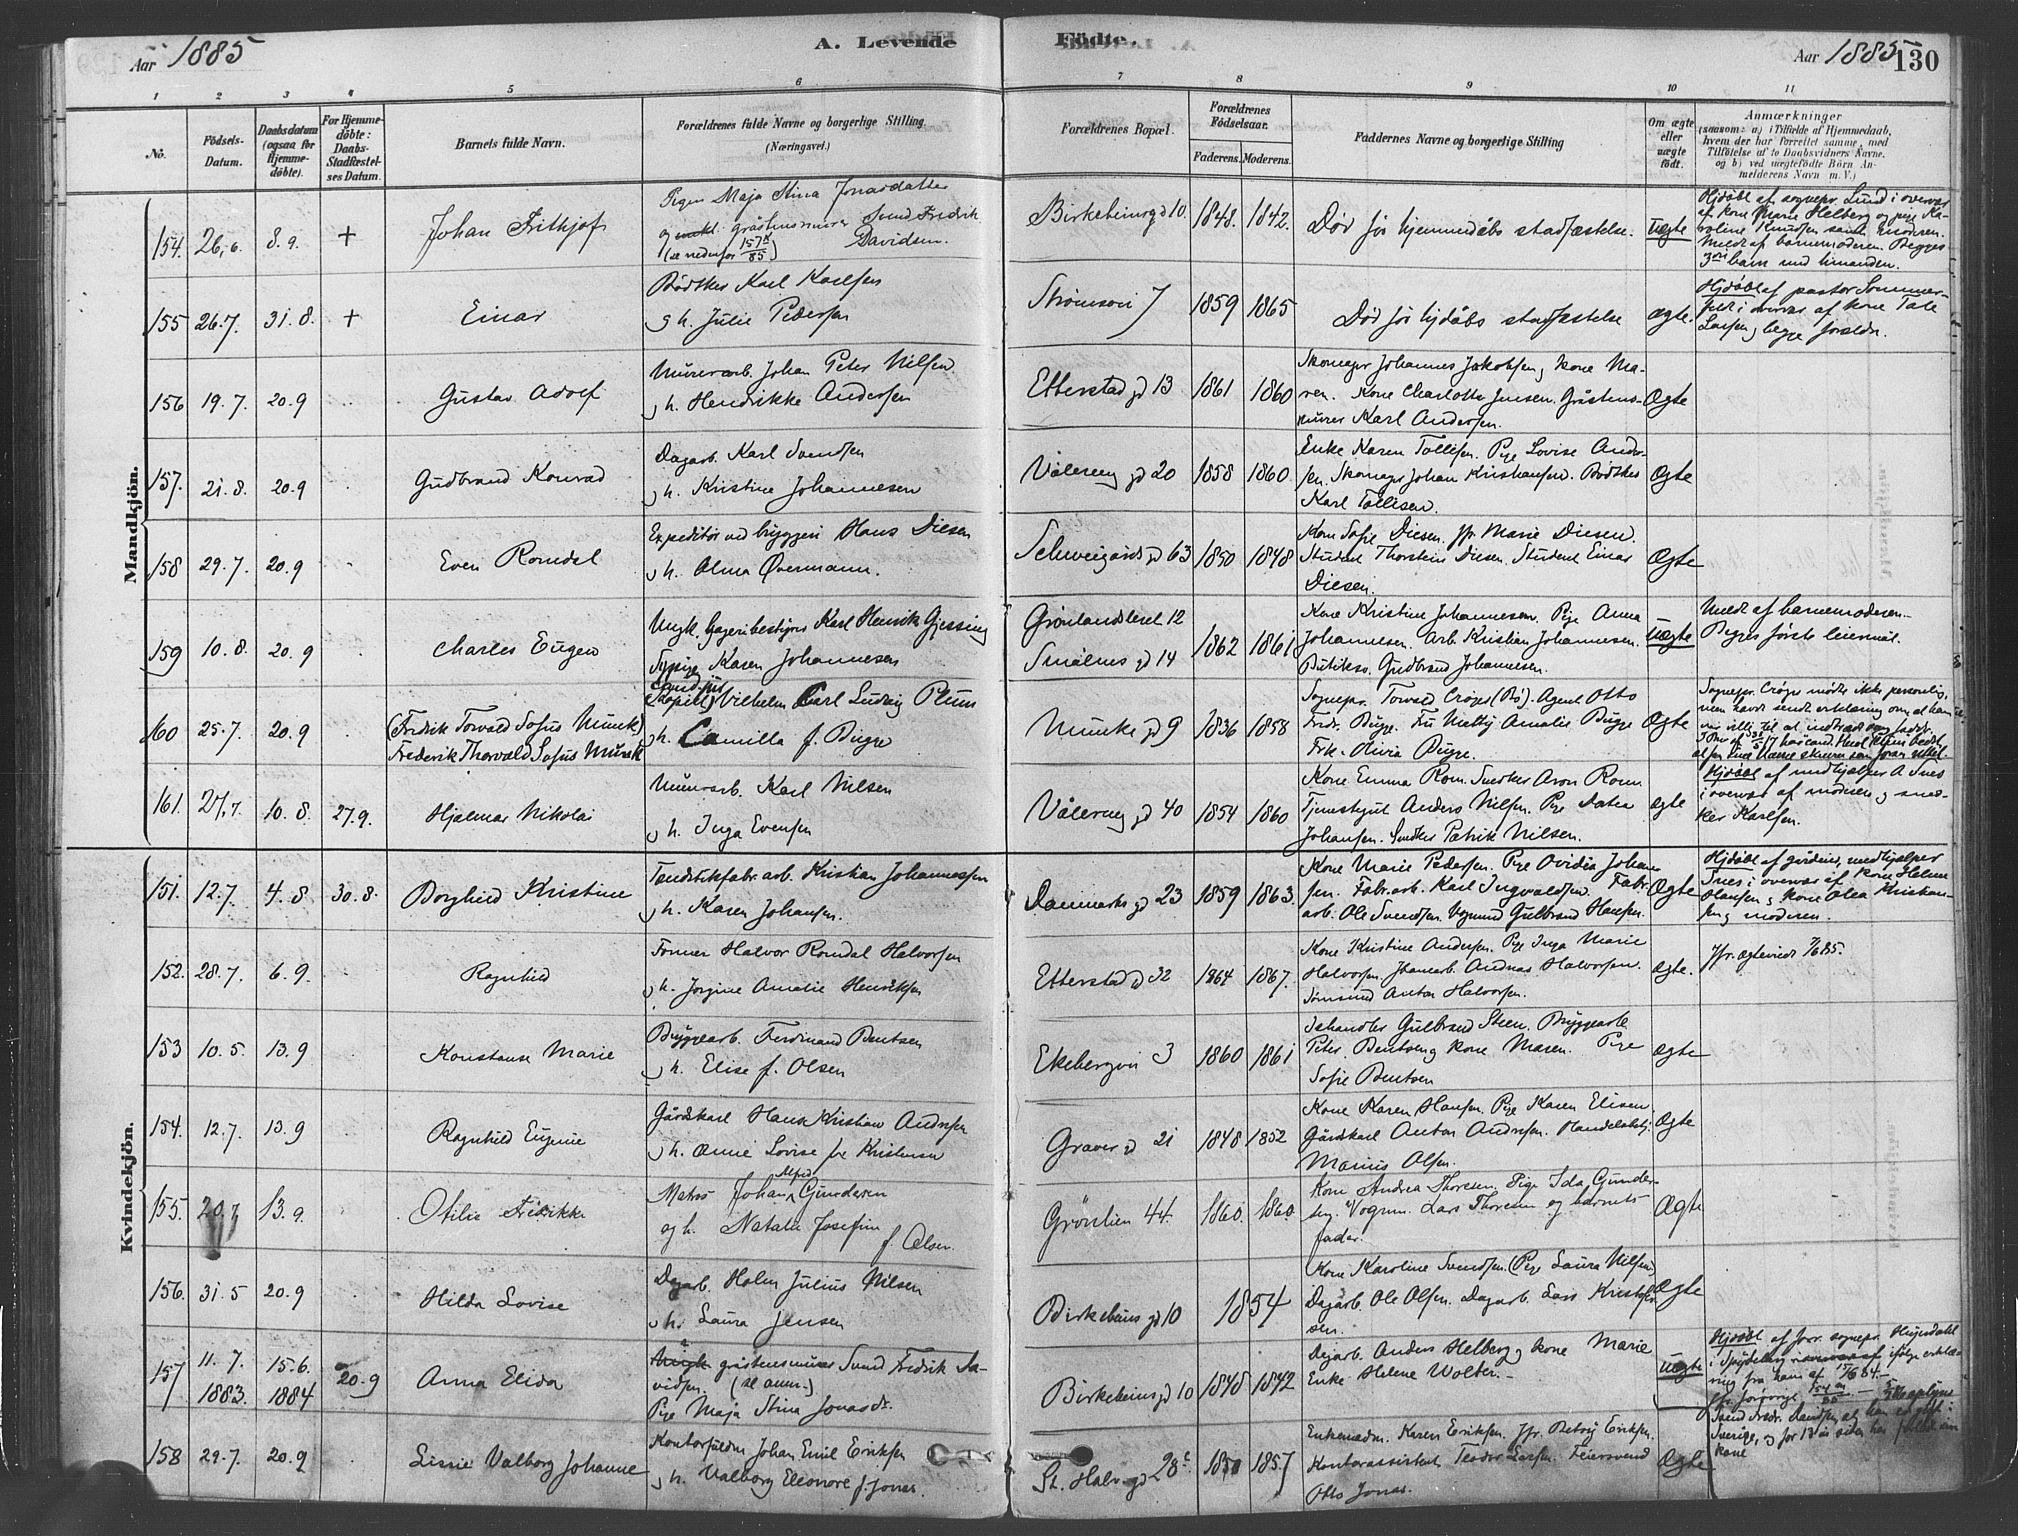 Aar 1885
A. Levende
Födte.
Aar 1885
130
1 2 3 4 5 6 7 8 9 10 11
No.
Födsels-Datum.
Daabsdatum (ogsaa for Hjemmedöbte).
For Hjemmedöbte: Daabs-Stadfæstelses Datum.
Barnets fulde Navn.
Forældrenes fulde Navne og borgerlige Stilling. (Næringsvei.)
Forældrenes Bopæl.
Forældrenes Födselsaar.
Faderens. Moderens.
Faddernes Navne og borgerlige Stilling
Om ægte eller uægte födt.
Anmærkninger
(saasom: a) i Tilfælde af Hjemmedaab,
hvem der har forrettet samme, med
Tilföielse af to Daabsvidners Navne.
og b) ved uægtefödte Börn An-
melderens Navn m. V.)
Mandkjön.
154. 26.6. 8.9. + Johan Frithjof
Pigen Maja Stina Jonasdatter
og gråstensmurer Svend Fredrik
(se nedenfor 157/85) Davidsen.
Birkebeinergd 10. 1848. 1842.
Død før hjemmedåbs stadfæstelse.
Uægte
Hjdøbt af sognepr. Lund i overvær
af kone Marie Helberg og pige Ka-
roline Knudsen samt moderen.
Meldt af barnemoderen. Begges
3die barn med hinanden.
155 26.7. 31.8. + Einar
Bødtker Karl Karlsen
og h. Julie Pedersen
Strømsvei 7 1859 1865
Død før hjdåbs stadfæstelse
Ægte.
Hjdøbt af pastor Sommer-
feldt i overvær af kone Tale
Larsen og begge forældre.
156 19.7. 20.9 Gustav Adolf
Murerarb. Johan Peter Nilsen
og h. Hendrikke Andersen
Etterstad gd 13 1861 1860
Skomager Johannes Jakobsen og kone Ma-
ren. Kone Charlotte Jensen. Gråstens-
murer Karl Andersen.
Ægte
157. 21.8. 20.9 Gudbrand Konrad
Dagarb. Karl Svendsen
og h. Kristine Johannesen
Vålereng gd 20 1858 1860
Enke Karen Tollefsen. Pige Lovise Ander-
sen. Skomager Johan Kristiansen. Bødtker
Karl Tollisen.
Ægte
158 29.7. 20.9 Even Romdal
Expeditør ved bryggeri Hans Diesen
og h. Alma Øvermann.
Schweigårdsgd 63 1850 1848
Kone Sofie Diesen. Jfr Marie Diesen.
Student Thorstein Diesen. Student Einar
Diesen.
Ægte
159 10.8. 20.9 Charles Eugen
Ungk. Karl Henrik Gjessing
Sypige Karen Johannesen
Grønlandsleret 12
Smålens gd 14 1862 1861
Kone Kristine Johannesen. Pige Anna
Johannesen. Arb. Kristian Johannesen.
Butikks. Gudbrand Johannesen.
Uægte
Meldt af barnemoderen.
Begges første leiermål.
160 25.7. 20.9
(Fredrik Torvald Sofus Munck)
Frederik Thorvald Sofus Munck
Vilhelm Carl Ludvig Plum
h. Camilla f. Bugge
Munkegd 9 1836 1858
Sognepr. Torvald Crøger (Bø). Agent Otto
Fredr. Bugge. Fru Amalie Bugge
Frk. Olivia Bugge.
Ægte
Sognepr. Crøger mødte ikke personlig,
men havde sendt erklæring om, at han
161. 27.7. 10.8. 27.9. Hjalmar Nikolai
Murerarb. Karl Nilsen
og h. Inga Evensen
Vålereng gd 40 1854 1860
Kone Emma Rom. Snedker Aron Rom.
Tjenestgut Anders Nilsen. Pige Datea
Johansen. Snedker Patrik Nilsen.
Ægte
Hjdøbt af medhjælper A. Snes
i overvær af moderen og sned-
ker Karlsen.
Kvindekjön.
151. 12.7. 4.8 30.8. Borghild Kristine
Tændstikfabr. arb. Kristian Johannessen
og h. Karen Johansen.
Danmarks gd 23 1859 1863.
Kone Marie Pedersen. Pige Ovidia Johan-
sen. Fabr.arb. Karl Ingvaldsen. Fabr.
arb. Ole Svendsen. Vognmd Gulbrand Hansen.
Ægte
Hjdøbt af medhjælper
Snes i overvær af kone Helene
Hansen og kone Olea Kristian-
sen og moderen.
152. 28.7. 6.9. Ragnhild
Former Halvor Romdal Halvorsen
og h. Jorgine Amalie Henriksen
Etterstad gd 32 1864 1867.
Kone Kristine Andersen. Pige Inga Marie
Halvorsen. Andreas Halvorsen.
Sømand Anton Halvorsen.
Ægte.
153 10.5. 13.9 Konstanse Marie
Bryggearb. Ferdinand Bentsen
og h. Elise f. Olsen
Ekebergvei 3 1860 1861
Ishandler Gulbrand Steen. Bryggearb.
Peter Bentsen og kone Maren. Pige
Sofie Bentsen
Ægte
154. 12.7. 13.9 Ragnhild Eugenie
Gårdskarl Hans Kristian Andersen
og h. Anne Lovise f. Kristensen
Graver gd 21 1848 1852
Kone Karen Hansen. Pige Karen Elisen
Gårdskarl Anton Andersen. Handelsbetj.
Marius Olsen.
Ægte
155. 20.7 13.9. Otilie Fredrikke
Matros Johan Alfred Gundersen
og h. Natalie Josefine
f. Olsen.
Grönlien 44. 1860. 1860.
Kone Andrea Thoresen. Pige Ida Gunder-
sen. Vognm. Lars Thoresen og barnets
fader.
Ægte
156. 31.5 20.9 Hilda Lovise
Dagarb. Holm Julius Nilsen
og h. Laura Jensen
Birkebeins gd 10 1854
Kone Karoline Svendsen. (Pige Laura Nilsen)
Dagarb. Ole Olsen. Dagarb. Lars Kristof-
sen.
Ægte
157 11.7. 1883. 15.6. 1884 20.9 Anna Elida
gråstensmurer Svend Fredrik Da-
vidsen. (se anm.)
Pige Maja Stina Jonasdr.
Birkebeins gd 10 1848 1842
Dagarb. Anders Helberg og kone Marie
Enke Helene Wolter.
Uægte
Hjdøbt af sognepr.
i Spydeberg ifølge erklæ-
ring fra ham af
158 29.7. 20.9 Lissie Valborg Johanne
Kontorfuldm. Johan Emil Eriksen
og h. Valborg Eleonore f. Jonas.
St. Halv. gd 28c 1850 1857
Enkemadm. Karen Eriksen. Jfr. Betsy Eriksen.
Kontorassistent Teodor Larsen. Feiersvend
Otto Jonas.
Ægte